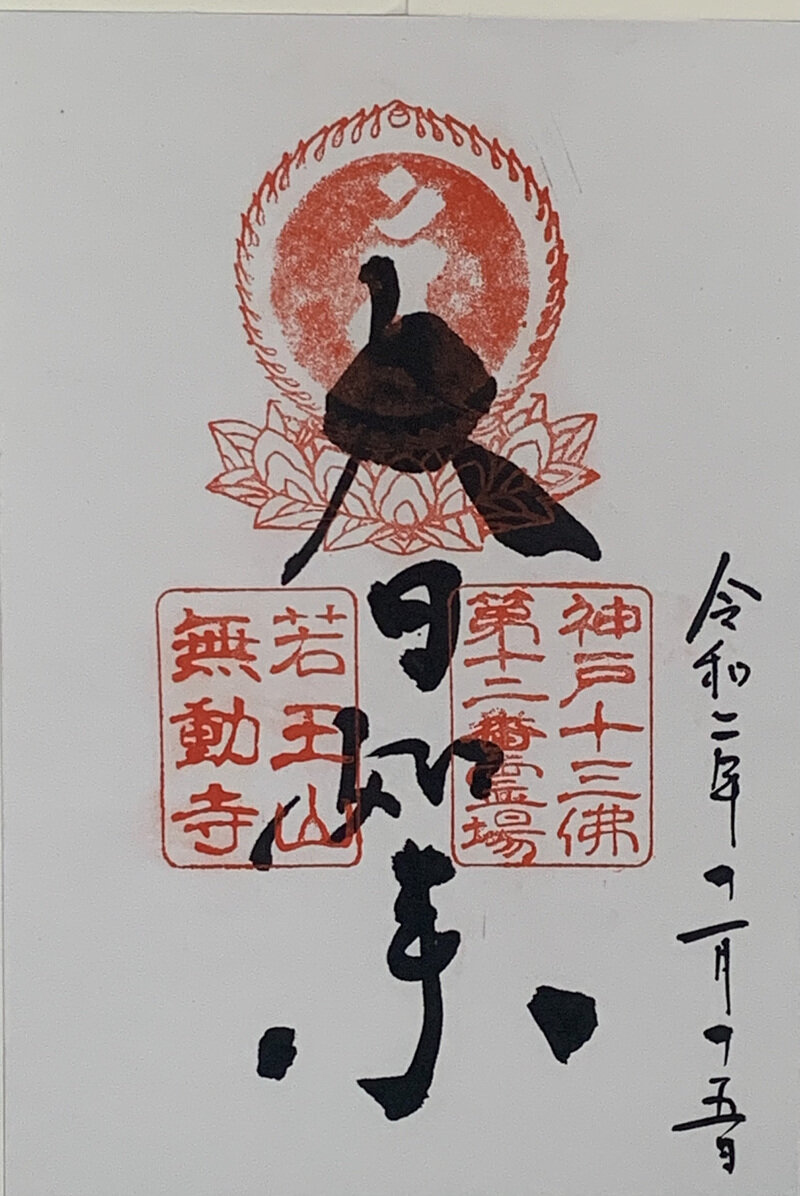 令和二年十一月十五日
神戸十三佛
第十二番霊場
大日如来
若王山
無動寺